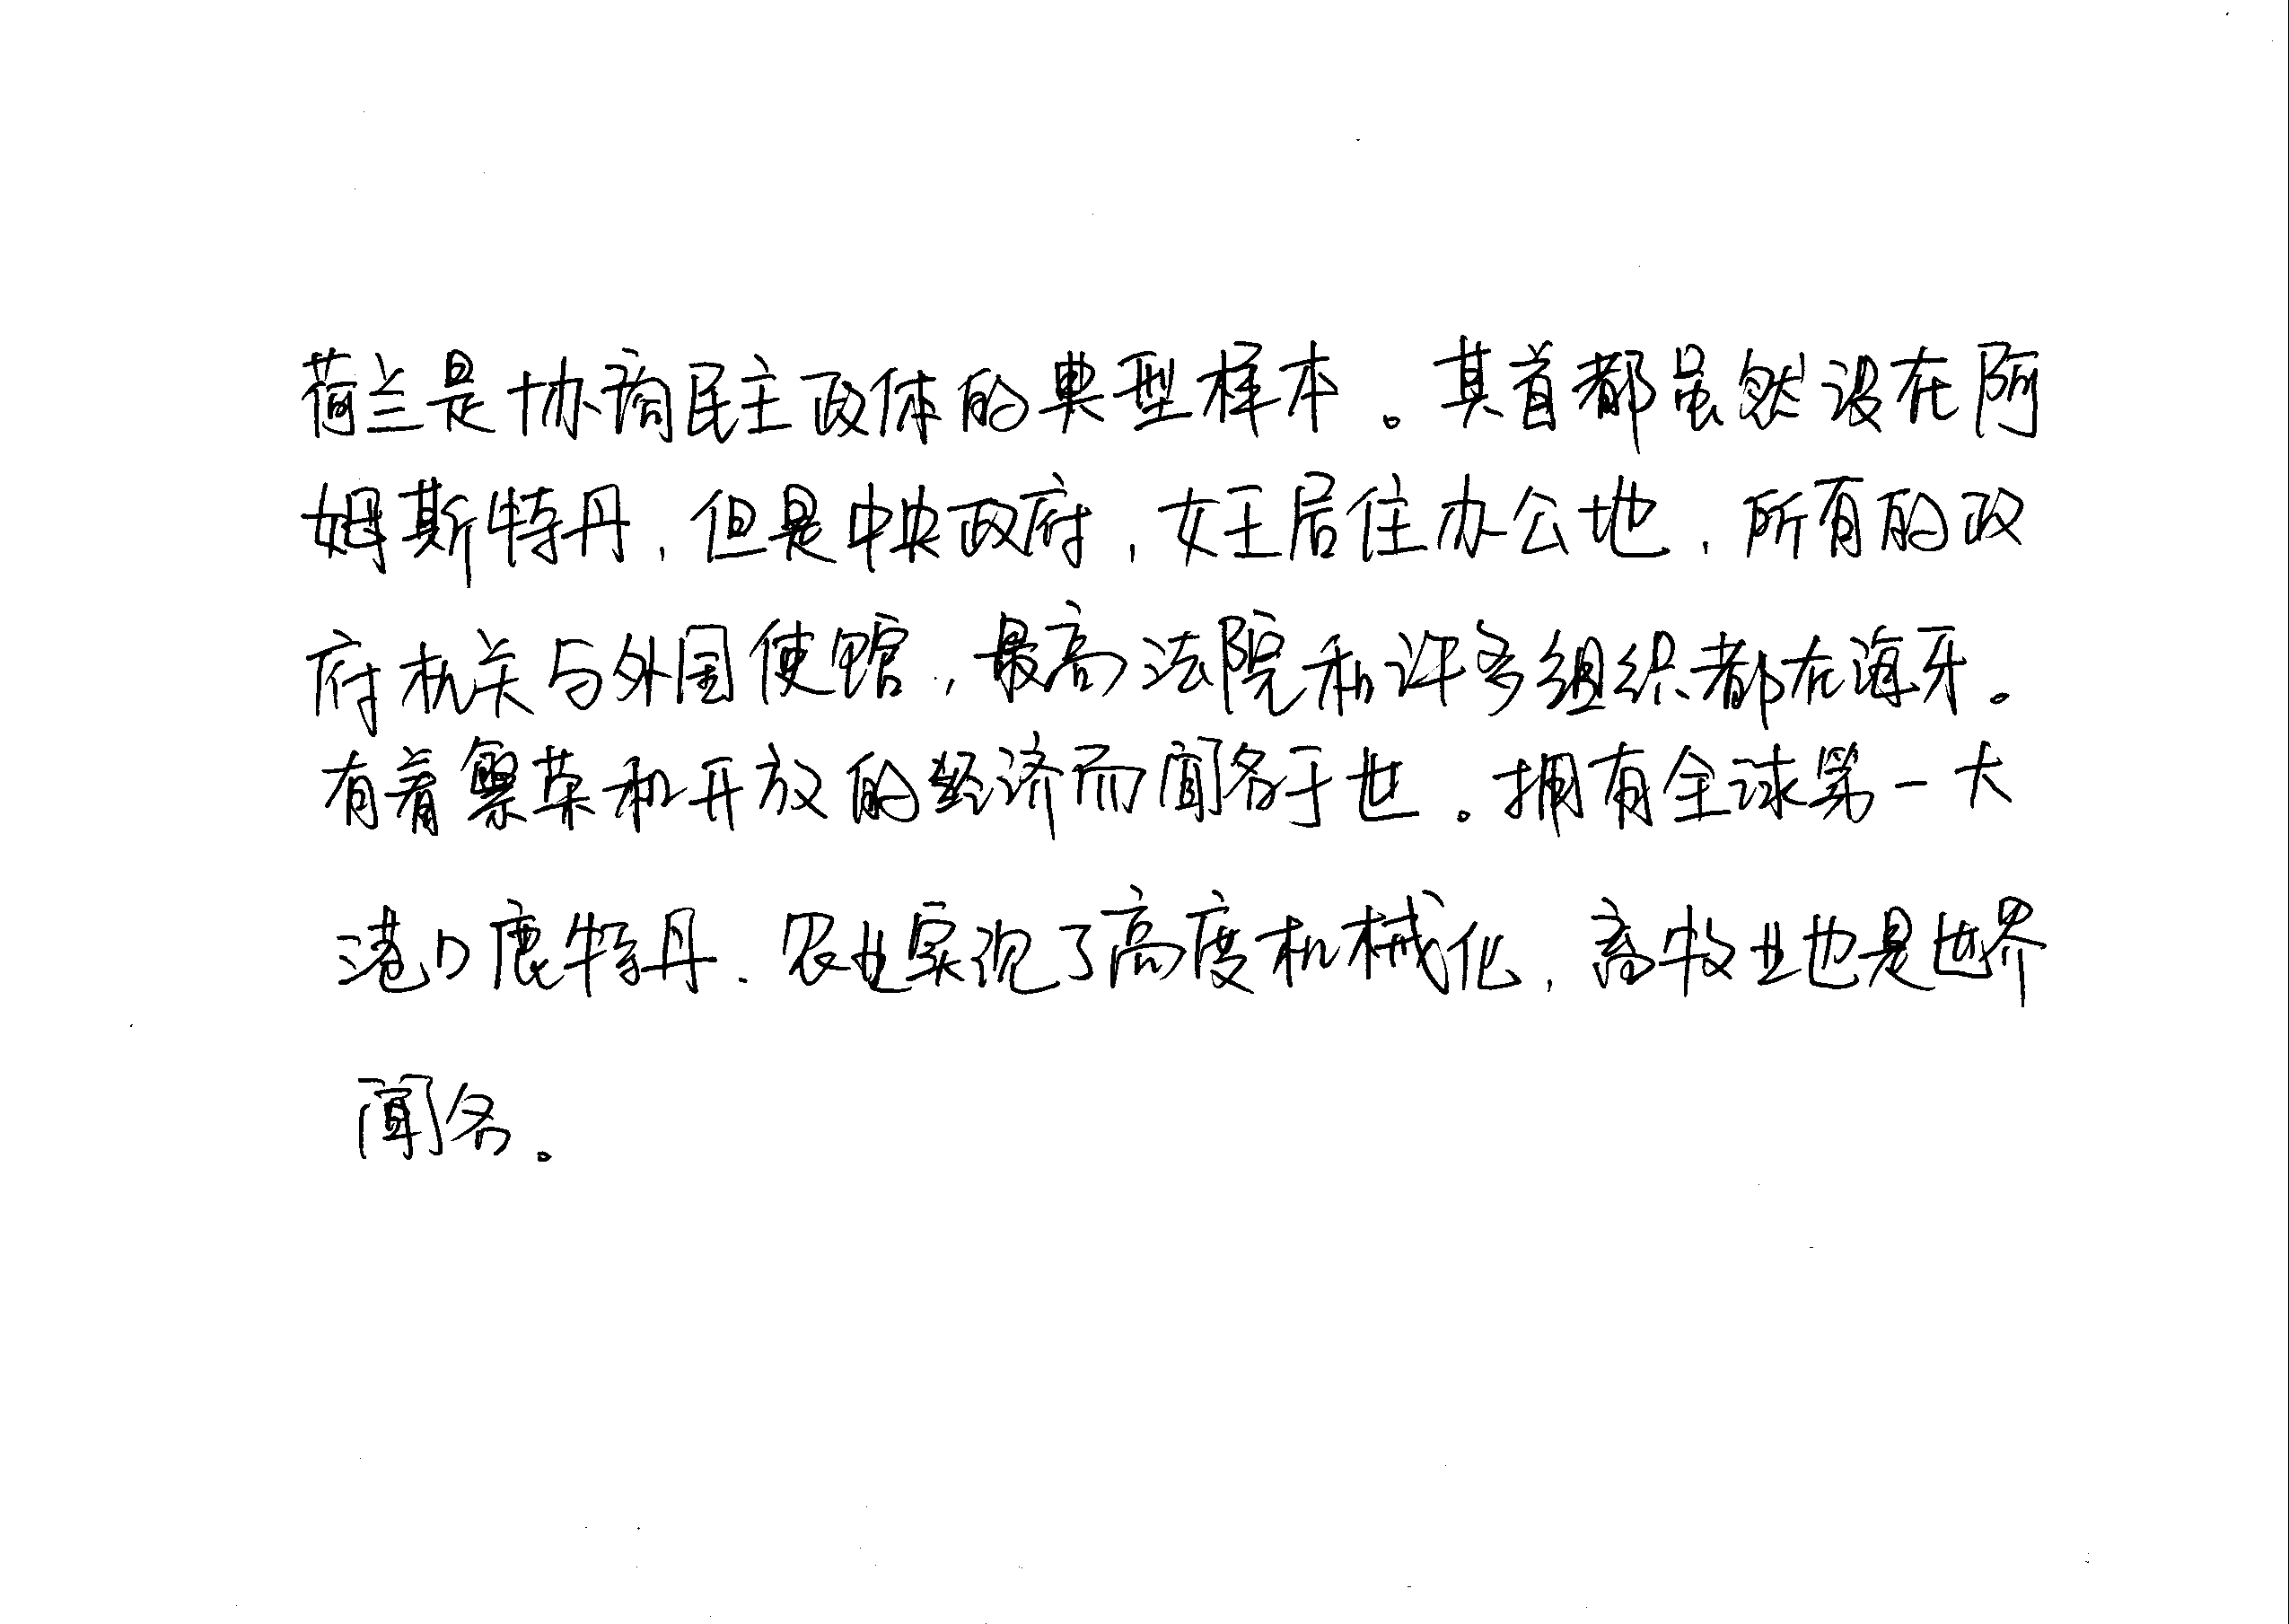 荷兰是协调民主政体的典型样本。其首都虽然设在阿
姆斯特丹,但是中央政府,女王居住办公地,所有的政
府机关与外国使馆,最高法院和许多组织都在海牙。
有着繁荣和开放的经济而闻名于世。拥有全球第一大
港口鹿特丹.农业实现了高度机械化,畜牧业也是世界
闻名。